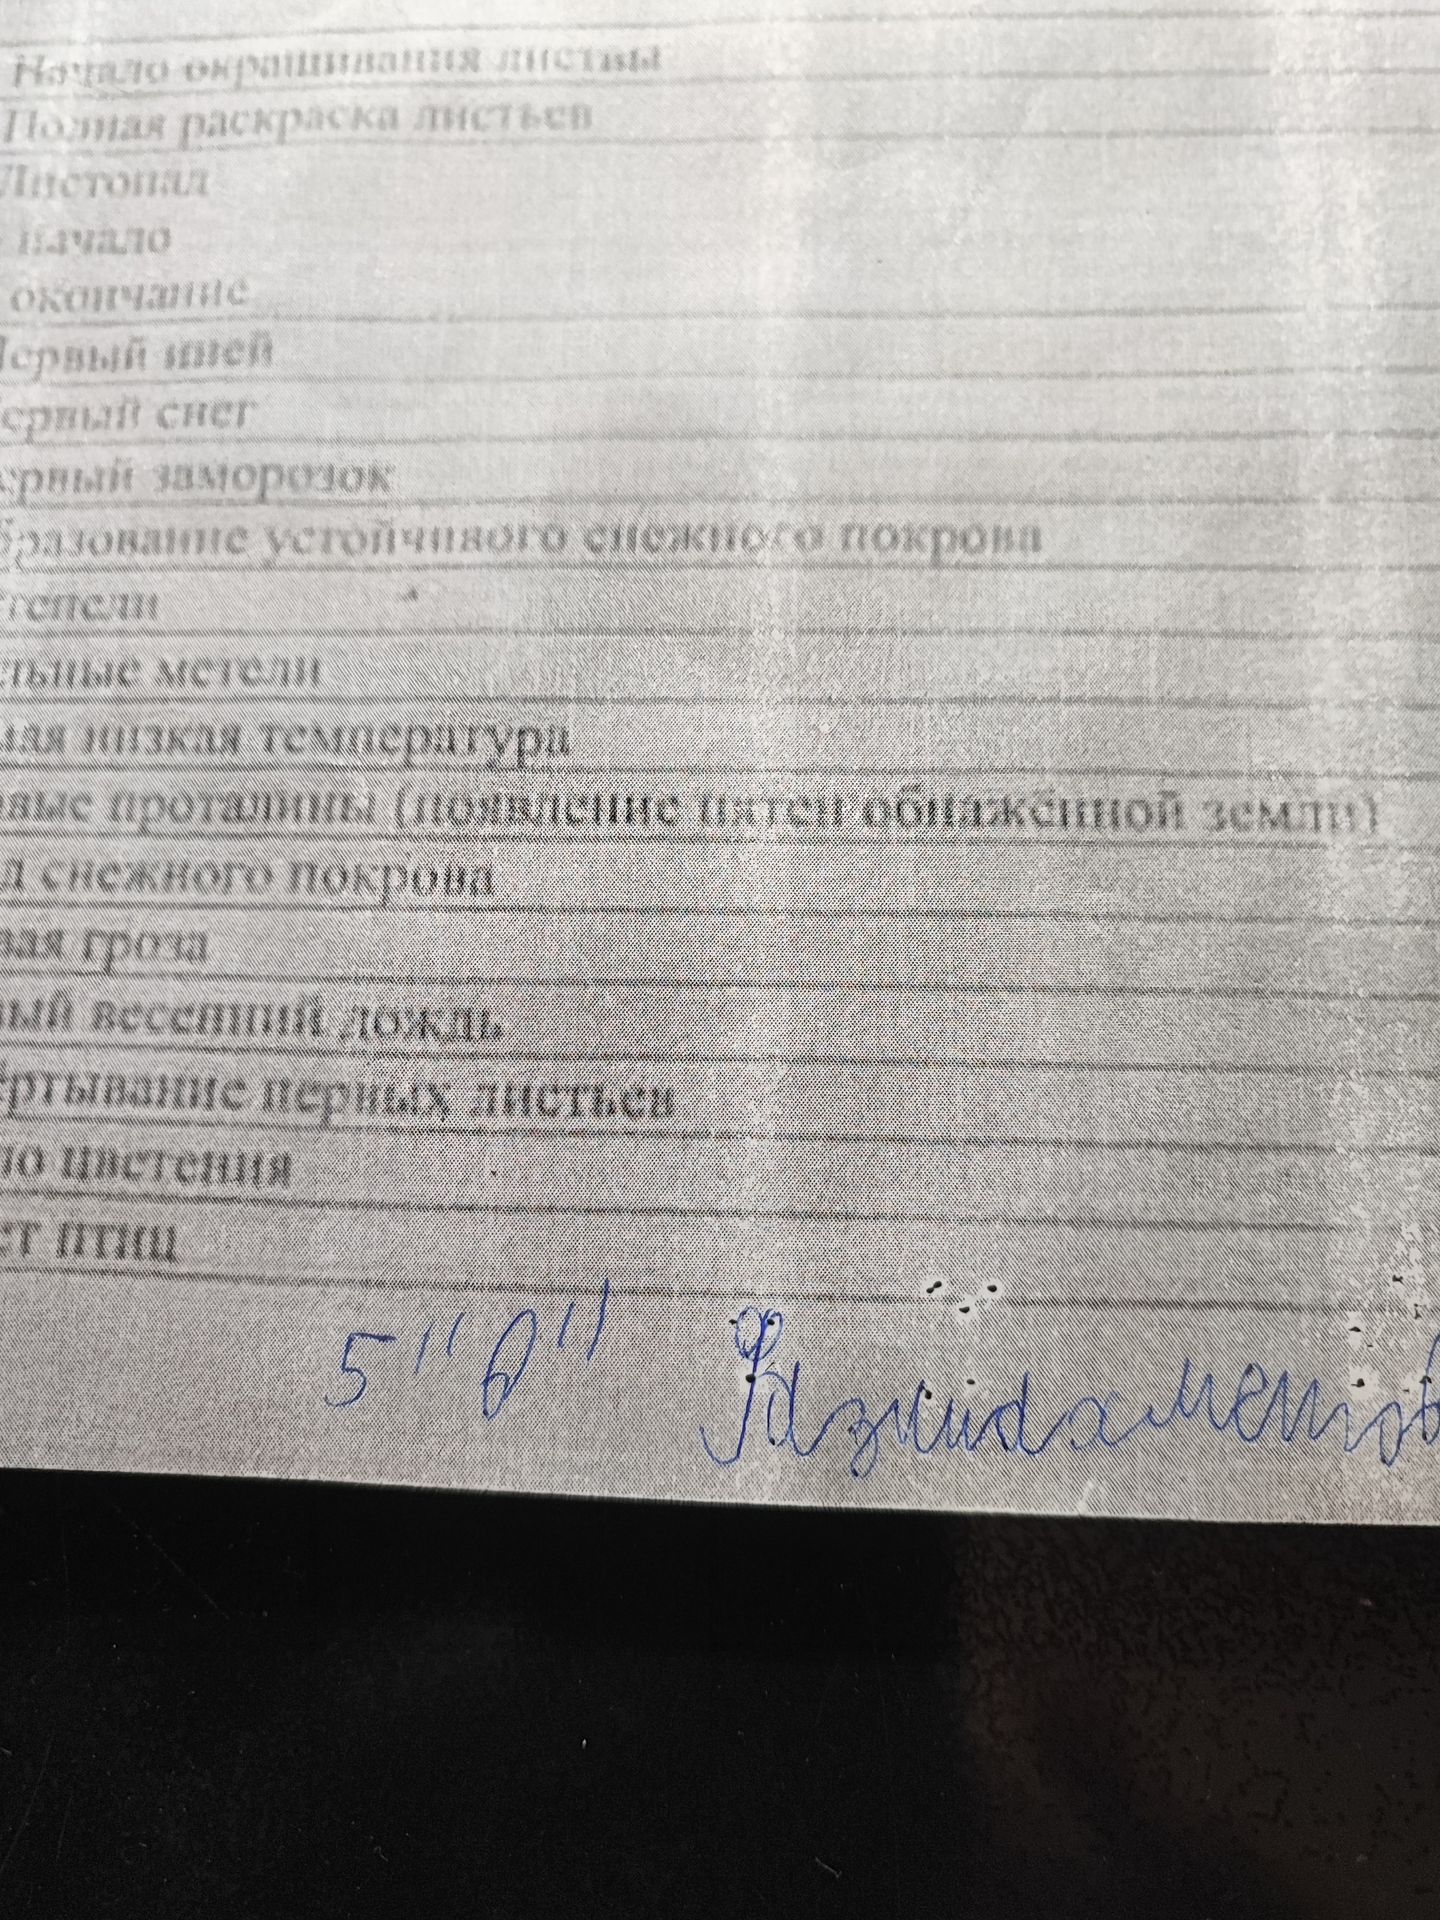 Начало окрашивания листвы
Полная раскраска листьев
Листопад
- начало
окончание
Первый иней
ервый снег
ервый заморозок
бразование устойчивого снежного покрова
ттепели
льные метели
мая низкая температура
вые проталины (появление пятен обнажённой земли)
д снежного покрова
вая гроза
вый весенний дождь
ертывание первых листьев
ло цветения
ет птиц
5 "В"